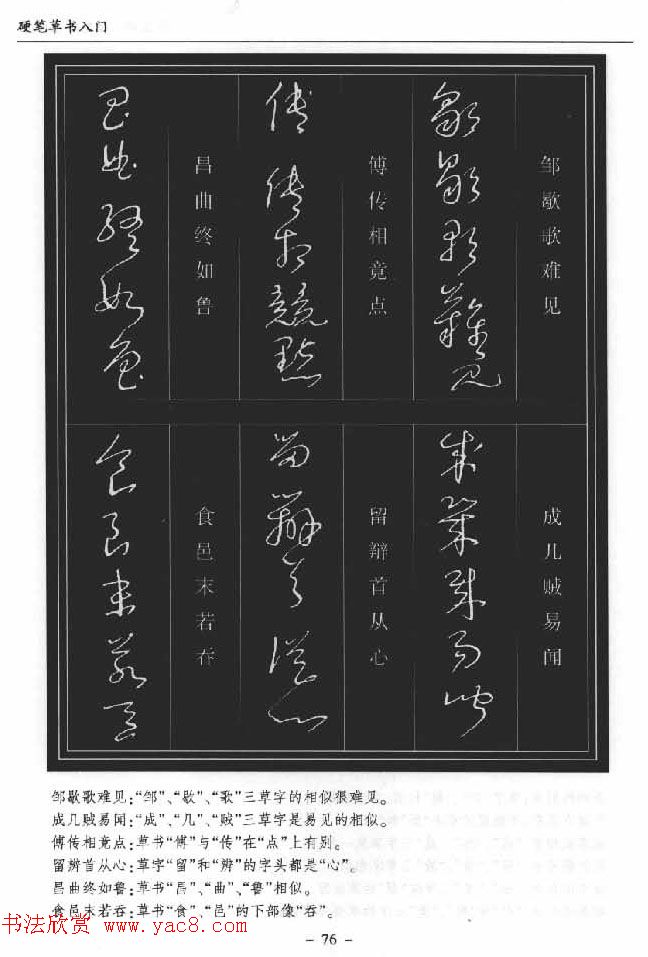 硬笔草书入门
邹歇歌难见
成几贼易闻
傅传相竟点
留辩首从心
昌曲终如鲁
食邑末若吞
邹歇歌难见:“邹”、“歇”、“歌”三草字的相似很难见。
成几贼易闻:“成”、“几”、“贼”三草字是易见的相似。
傅传相竟点:草书“傅”与“传”在“点”上有别。
留辨首从心:草字“留”和“辨”的字头都是“心”。
昌曲终如鲁:草书“昌”、“曲”、“鲁”相似。
食邑末若吞:草书“食”、“邑”的下部像“吞”。
书法欣赏 www.yac8.com
- 76 -